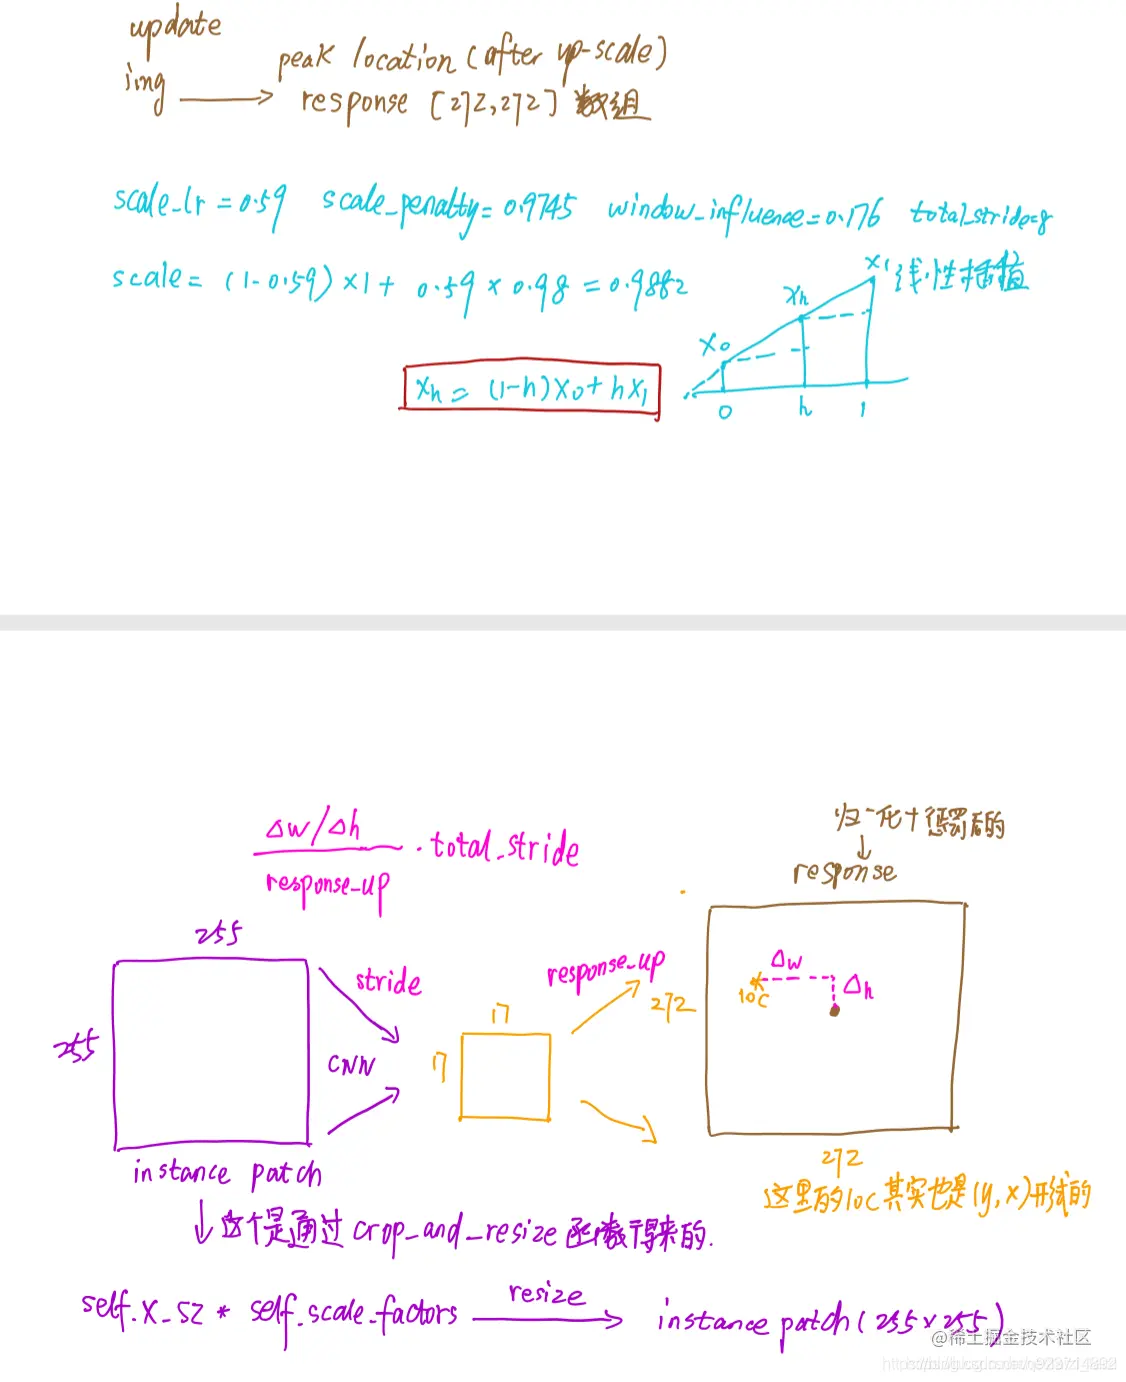 update
img → peak location (after up-scale)
response [272,272] 数组
scale_lr = 0.59 scale_penalty = 0.9745 window_influence = 0.176 total_stride=8
scale = (1-0.59)×1 + 0.59 × 0.98 = 0.9882
线性插值
x₀ xₕ x₁
0 h 1
xₕ = (1-h)x₀ + hx₁
Δw/Δh
response_up
· total_stride
归一化+惩罚后的
↓
response
255
255
stride
CNN
17
17
response_up
272
Δw
loc
Δh
272
instance patch
这里的loc其实也是(y,x)形式的
↓这个是通过crop_and_resize函数得来的.
self.x_sz * self.scale_factors resize → instance patch (255×255)
@稀土掘金技术社区